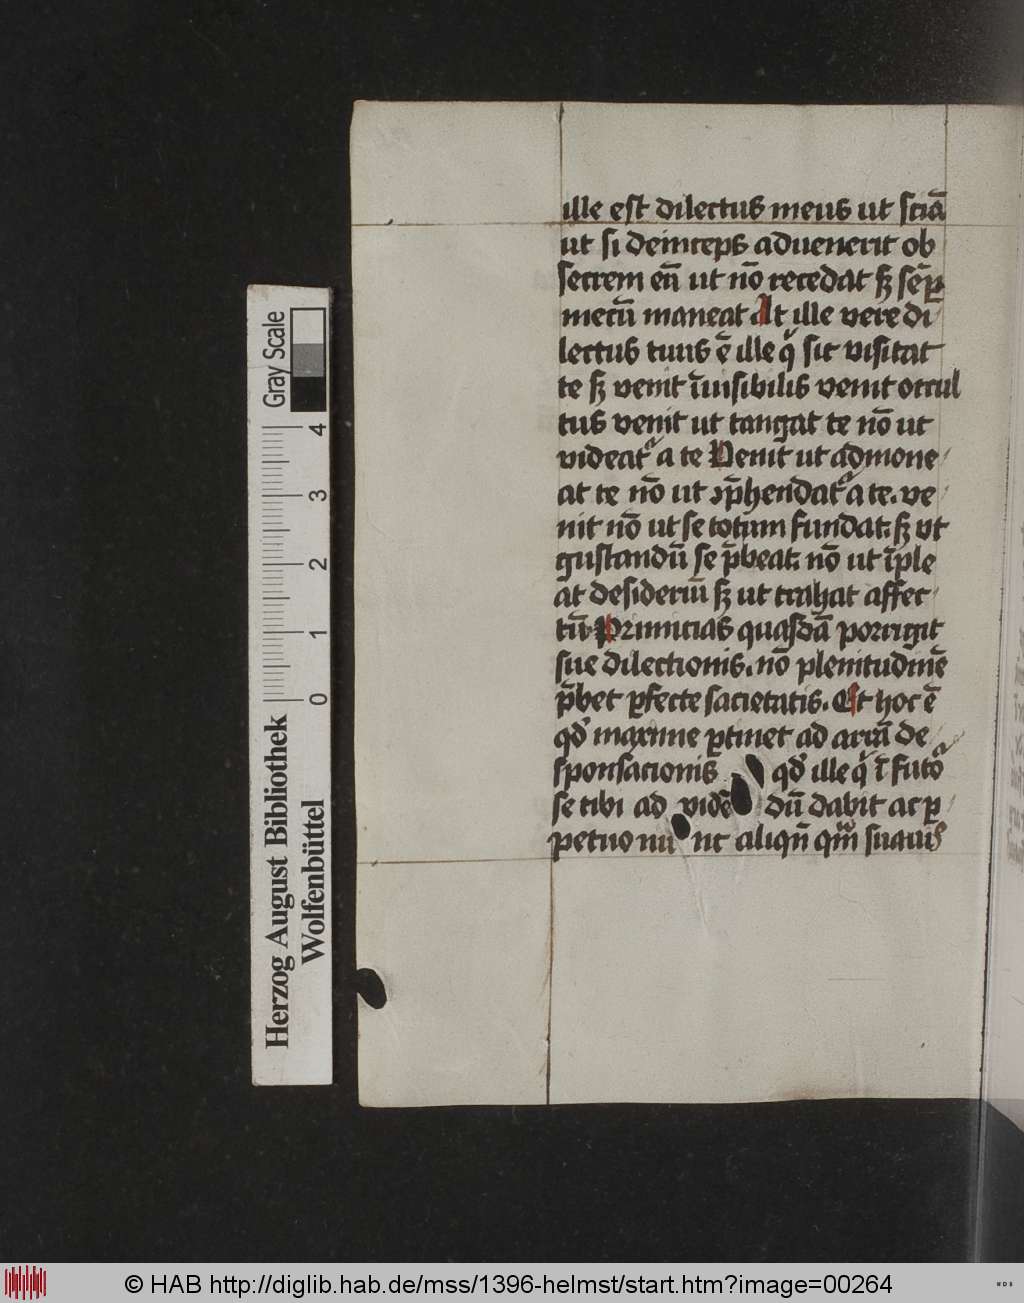 ille est dilectus meus ut sciā
ut si deinceps aduenerit ob
secrem eū ut nō recedat sꝫ sēꝑ
mecū maneat At ille vere di
lectus tuus ē ille q̇ sic visitat
te sꝫ venit īuisibilis venit occul
tus venit ut tangat te nō ut
videatᷣ a te Uenit ut admone
at te nō ut ꝯp̄hendatᷣ a te. ve
nit nō ut se totum fundat. sꝫ ut
gustandū se p̄beat. nō ut īple
at desideriū sꝫ ut trahat affec
tū. Primicias quasdā porrigit
sue dilectionis. nō plenitudinē
p̄bet ꝑfecte sacietatis. Et hoc ē
qd̓ maxime ꝑtinet ad arrā de
sponsacionis qd̓ ille q̇ ī futᷣo
se tibi ad vidē dū dabit ac ꝑ
petuo nu nc aliqn̄ qm̄ suauis
Gray Scale
4
3
2
1
0
Herzog August Bibliothek
Wolfenbüttel
© HAB http://diglib.hab.de/mss/1396-helmst/start.htm?image=00264
WDB